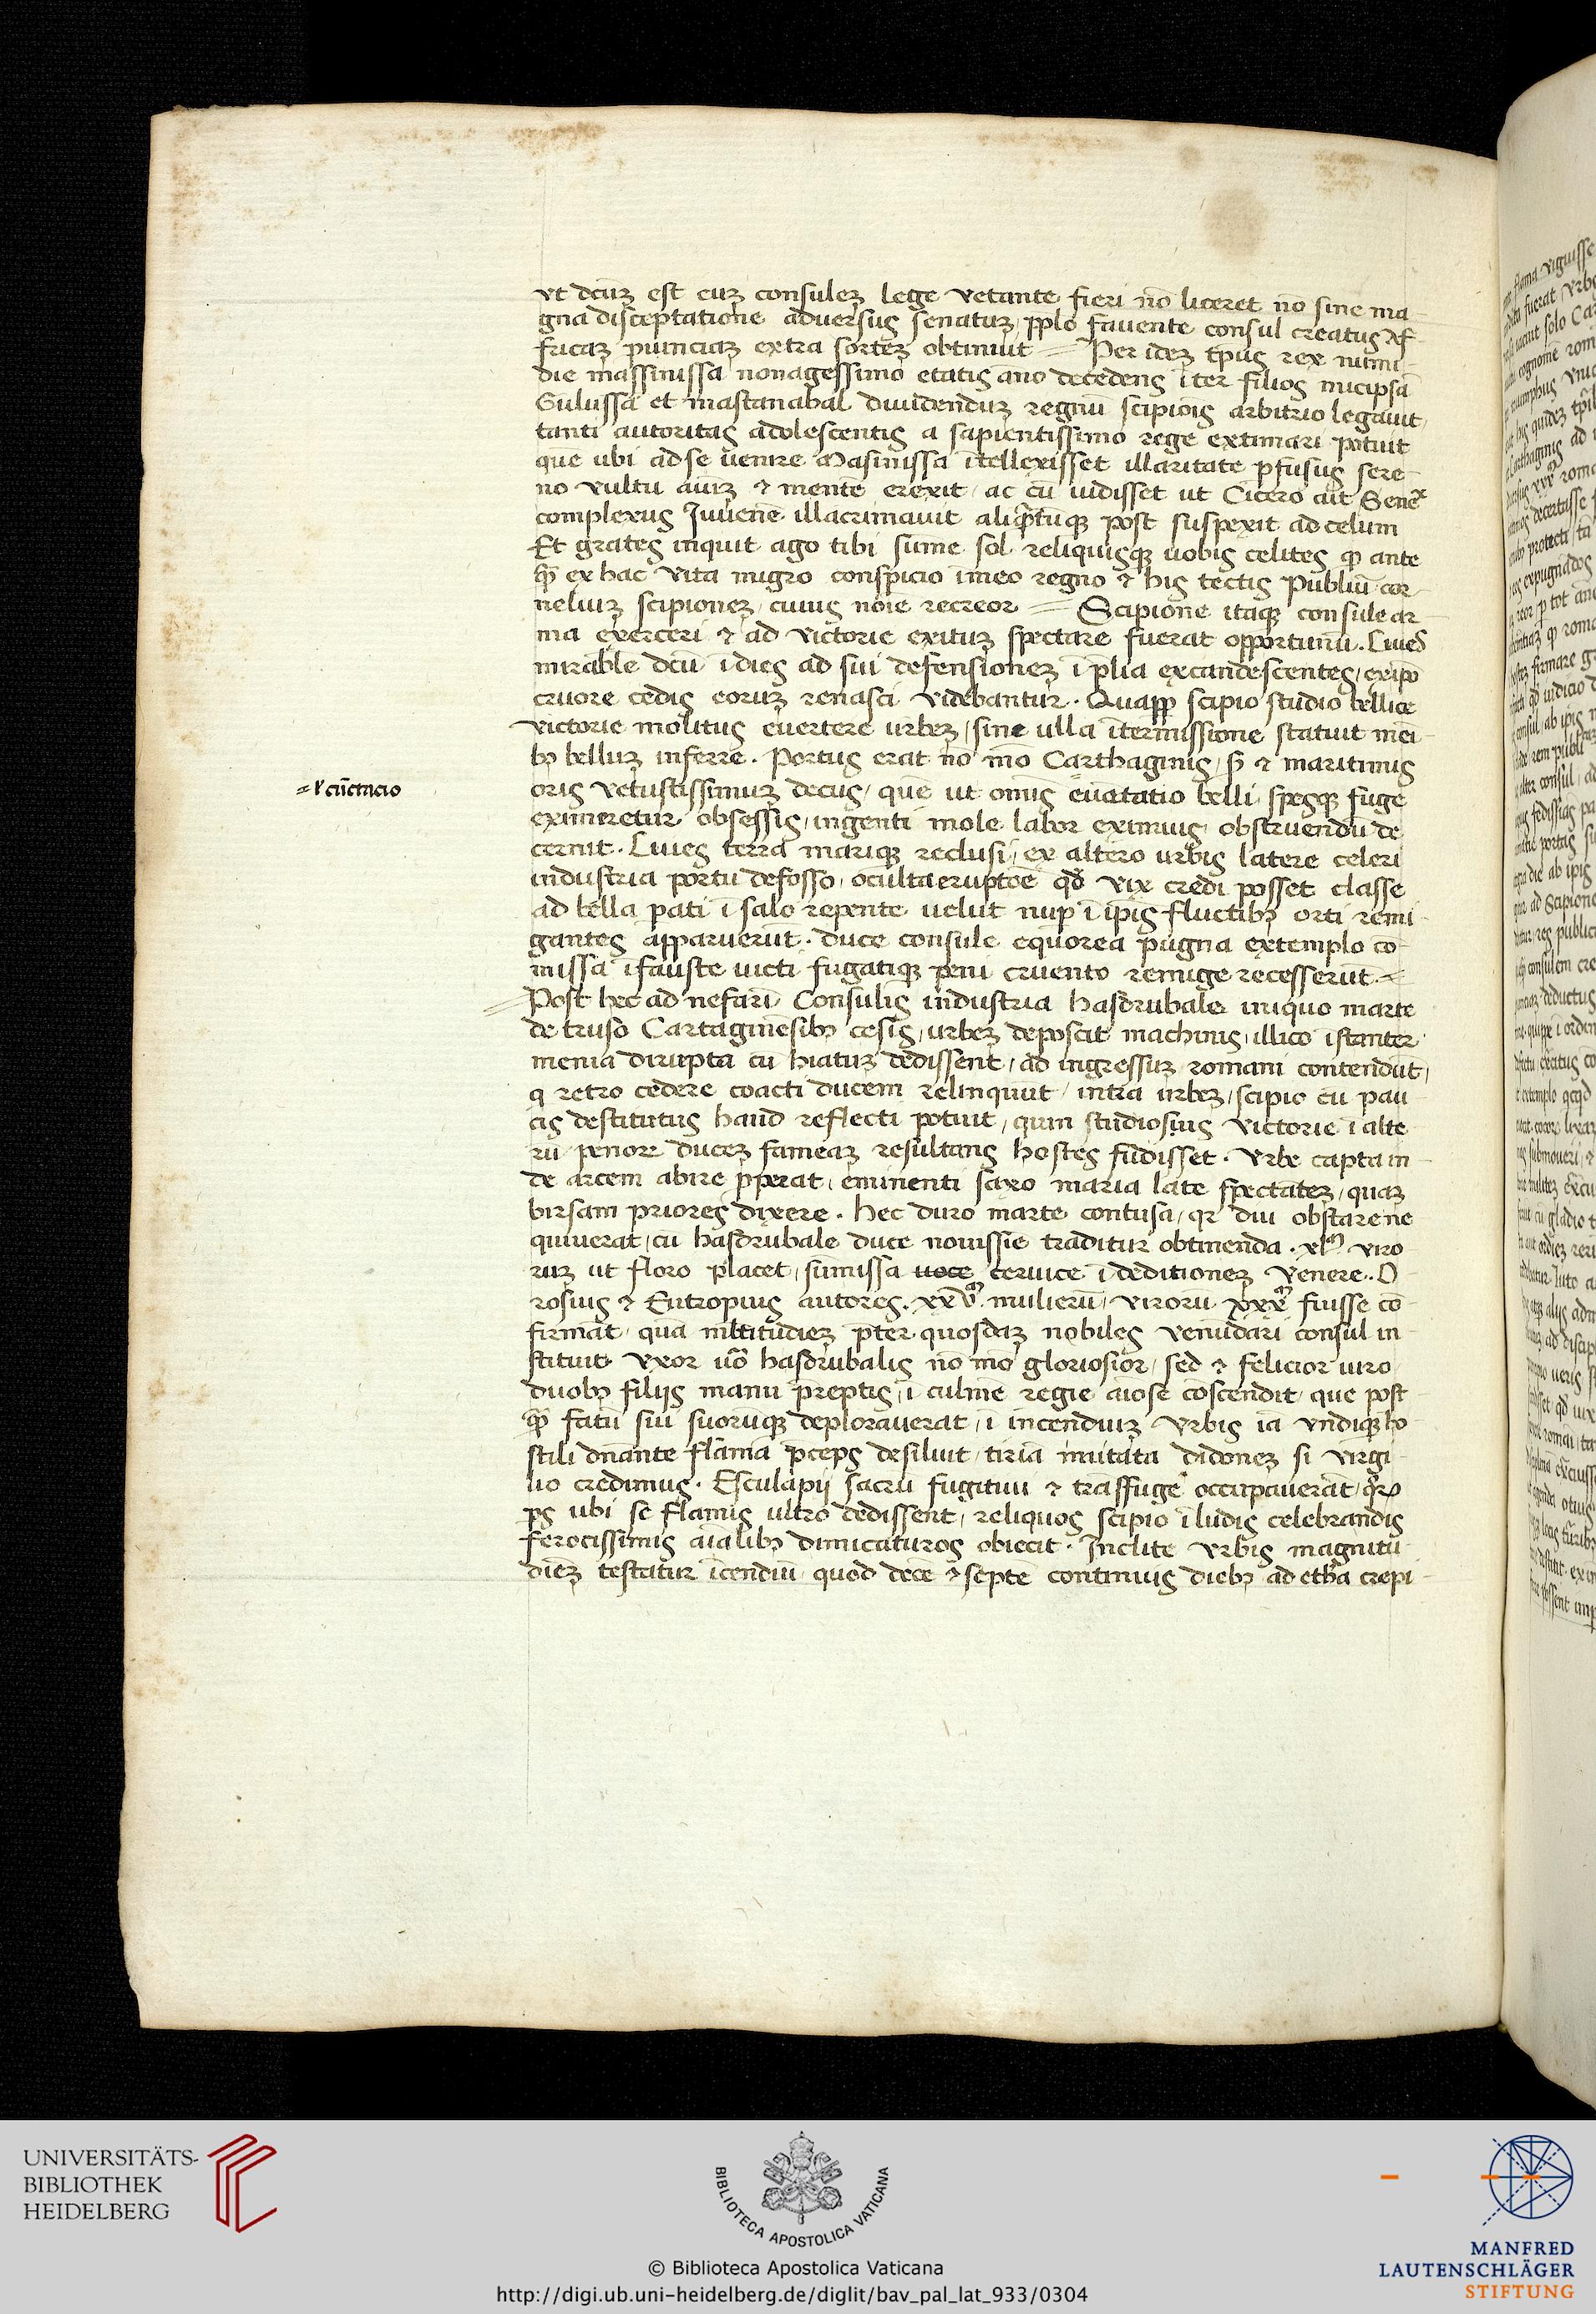 vt dcūz est cuz consulez lege vetante fieri nō liceret no sine ma
gna disceptatione adversus senatuz pplo favente consul creatus Af
fricaz puinciaz extra sortez obtinuit = Per idez tpus rex numi
die massinissa nonagessimo etatis āno decedens īter filios micipsā
Gulussā et mastanabal dividenduz regnū scipiōis arbitrio legavit
tanti autoritas adolescentis a sapientissimo rege extimari potuit
que ubi ad se venire Masinissa ītellexisset illaritate pfusus sere
no vultu aīuz & mente erexit ac cū vidisset ut Cicero ait Senex
complexus Juvenē illacrimavit aliqtūqz post suspexit ad celum
Et grates inquit ago tibi sūme sol reliquisqz vobis celites qp ante
qz ex hac vita migro conspicio ī meo regno & his tectis Publiū cor
neliuz scipionez cuius noīe recreor = Scipione itaqz consule ar
ma exerceri & ad victorie exituz spectare fuerat opportunū. Cives
mirabile dcū ī dies ad sui defensionez ī plia excandescentes
cruore cedis eoruz renasci videbantur. Quapp scipio studio bellice
victorie molitus evertere urbez sine ulla ītermissione statuit mēi
bz belluz inferre. Portus erat nō mō Carthaginis s & maritimis
oris vetustissimuz decus quē ut omīs evētatio belli spesqz fuge
eximeretur obsessis ingenti mole labor eximius obstruendū de
cernit. Cives terra mariqz reclusi ex altero urbis latere celeri
industria portu defosso oculta eruptōe qd vix credi posset classe
ad bella pati ī salo repente velut nup ī ipis fluctibz orti remi
gantes apparuerūt. duce consule equorea pugna extemplo co
missa ifauste victi fugatiqz peni cruento remige recesserūt =
= l' cūctacio
Post hec ad nefarī Consulis industria hasdrubale iniquo marte
de truso Cartaginēsibz cesis urbez deposcit machinis illico īstanter
menia dirupta cū hiatuz dedissent ad ingressuz romani contendūt
q retro cedere coacti ducem relinquūt intra urbez scipio cū pau
cis destitutus haud reflecti potuit quin studiosius victorie ī alte
rū penorē ducez fameaz resultans hostes fudisset. Urbe capta in
de arcem abire pperat eminenti saxo maria late spectātez quaz
birsam priores dixere. hec duro marte contusa qr diu obstare ne
quiverat cū hasdrubale duce novissīe traditur obtinenda. xlm viro
ruz ut floro placet sūmissa voce cervice ī deditionez venere. O
rosius & Eutropius autores. xxvm mulierū virorū xxxm fuisse cō
firmāt quā mltitudiez pter quosdaz nobiles venūdari consul in
stituit Uxor vō hasdrubalis nō mō gloriosior sed & felicior viro
duobz filiis manu preptis ī culmē regie aīose cōscendit que post
qz fatū sui suorūqz deploraverat ī incendiuz urbis ia vndiqz ho
stili dnante flāmā pceps desiluit tiriā imitata didonez si virgi
lio credimus. Esculapii sacrū fugitivi & trāsfuge occupaverāt
ps ubi se flāmis ultro dedissent reliquos scipio ī ludis celebrandis
ferocissimis aīalibz dimicaturos obiecit. Inclite urbis magnitu
diez testatur īcendiū quod decē & septē continuis diebz ad ethra crepi
UNIVERSITÄTS-
BIBLIOTHEK
HEIDELBERG
BIBLIOTECA APOSTOLICA VATICANA
© Biblioteca Apostolica Vaticana
http://digi.ub.uni-heidelberg.de/diglit/bav_pal_lat_933/0304
MANFRED
LAUTENSCHLÄGER
STIFTUNG